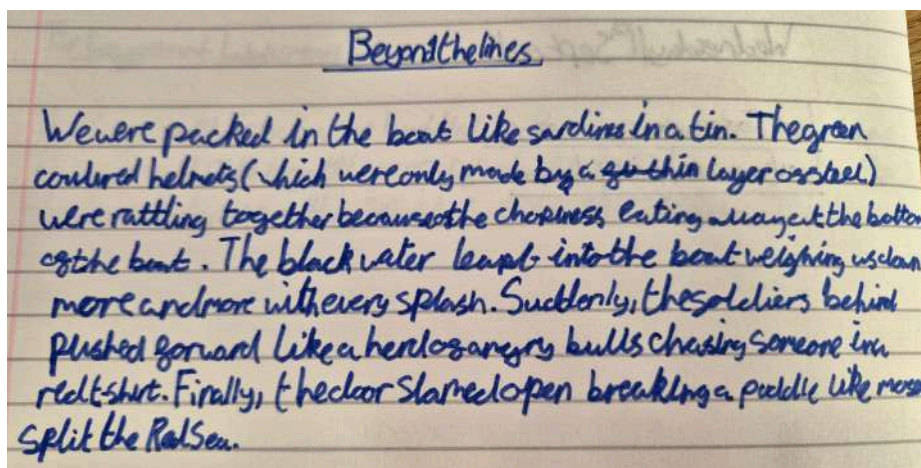 Beyond the lines
We were packed in the boat like sardines in a tin. The green
coulured helmets (which were only made by a thin layer of steel)
were rattling together because of the chopiness eating away at the botto
of the boat. The black water leapt into the boat weighing us down
more and more with every splash. Suddenly, the soldiers behind
pushed forward like a herd of angry bulls chasing someone in a
red t-shirt. Finally, the door slamed open breaking a puddle like mose
split the Red Sea.